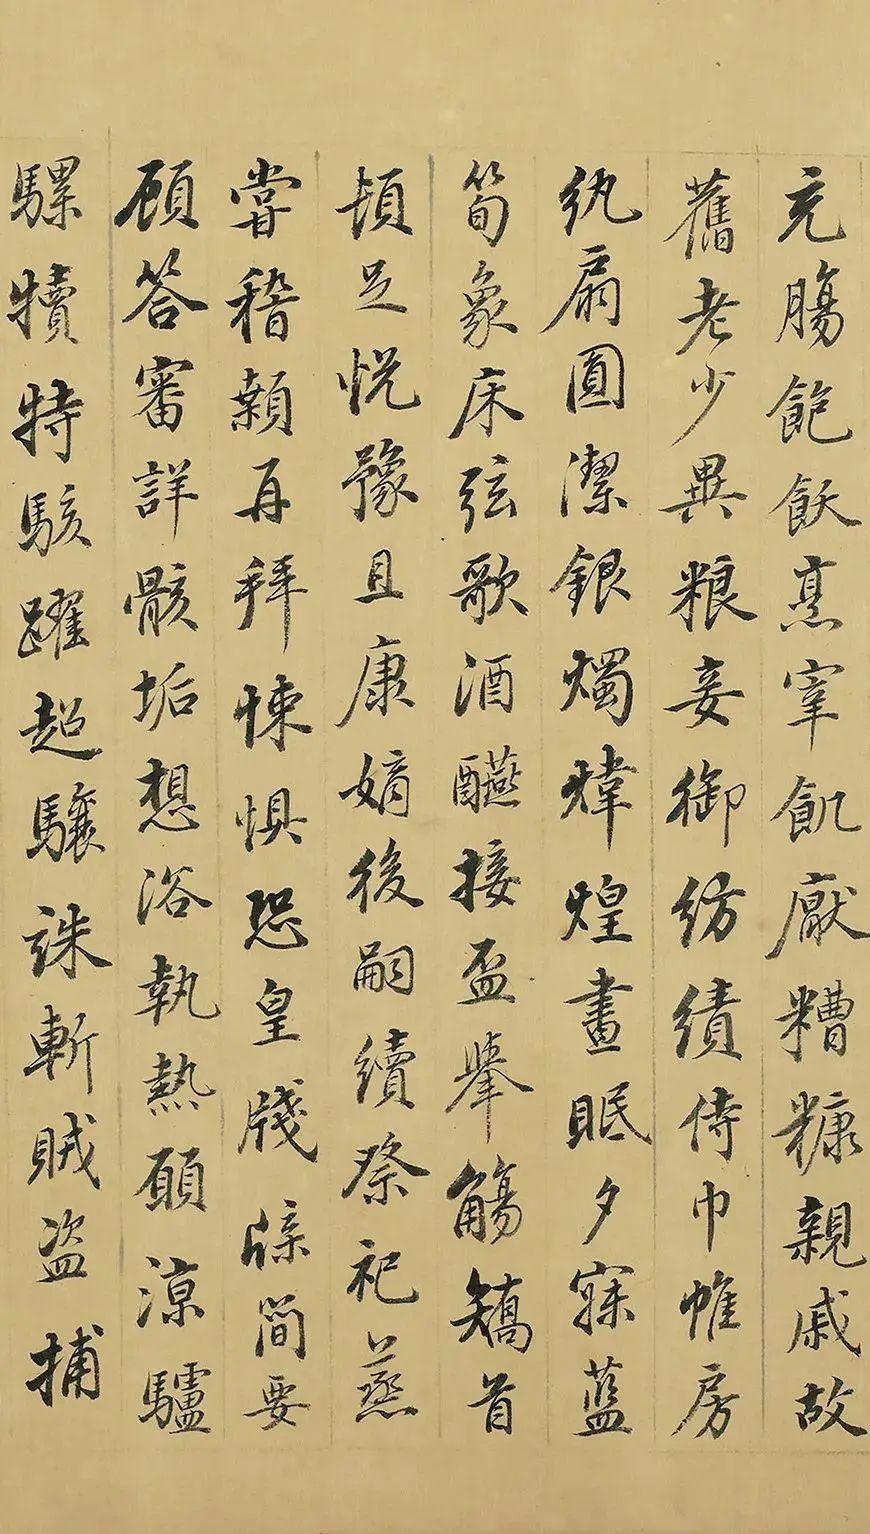 充膓飽飫烹宰飢厭糟糠親戚故
舊老少異粮妾御紡績侍巾帷房
紈扇圓潔銀燭煒煌晝眠夕寐藍
筍象床弦歌酒醼接盃舉觴矯首
頓足悦豫且康嫡後嗣續祭祀蒸
嘗稽顙再拜悚惧恐皇牋牒簡要
頋答審詳骸垢想浴執熱願凉驢
騾犢特駭躍超驤誅斬賊盗捕